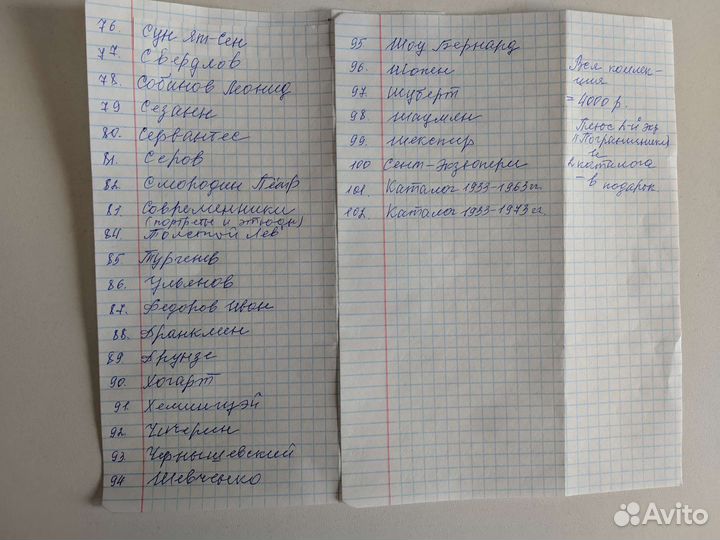 76. Сун Ят-Сен
77. Свердлов
78. Собинов Леонид
79 Сезанн
80. Сервантес
81. Серов
82. Смородин Пётр
83. Современники
(портреты и этюды)
84. Толстой Лев
85 Тургенев
86. Ульянов
87. Федоров Иван
88. Франклин
89. Фрунзе
90. Хогарт
91. Хемингуэй
92. Чичерин
93. Чернышевский
94 Шевченко
95. Шоу Бернард
96. Шопен
97. Шуберт
98. Шаумян
99. Шекспир
100 Сент-Экзюпери
101. Каталог 1933-1963 гг.
102. Каталог 1933-1973 гг.
Вся коллек-
ция
= 4000 р.
Плюс 2-й экз.
"Пограничники"
и
2 каталога
- в подарок
Avito